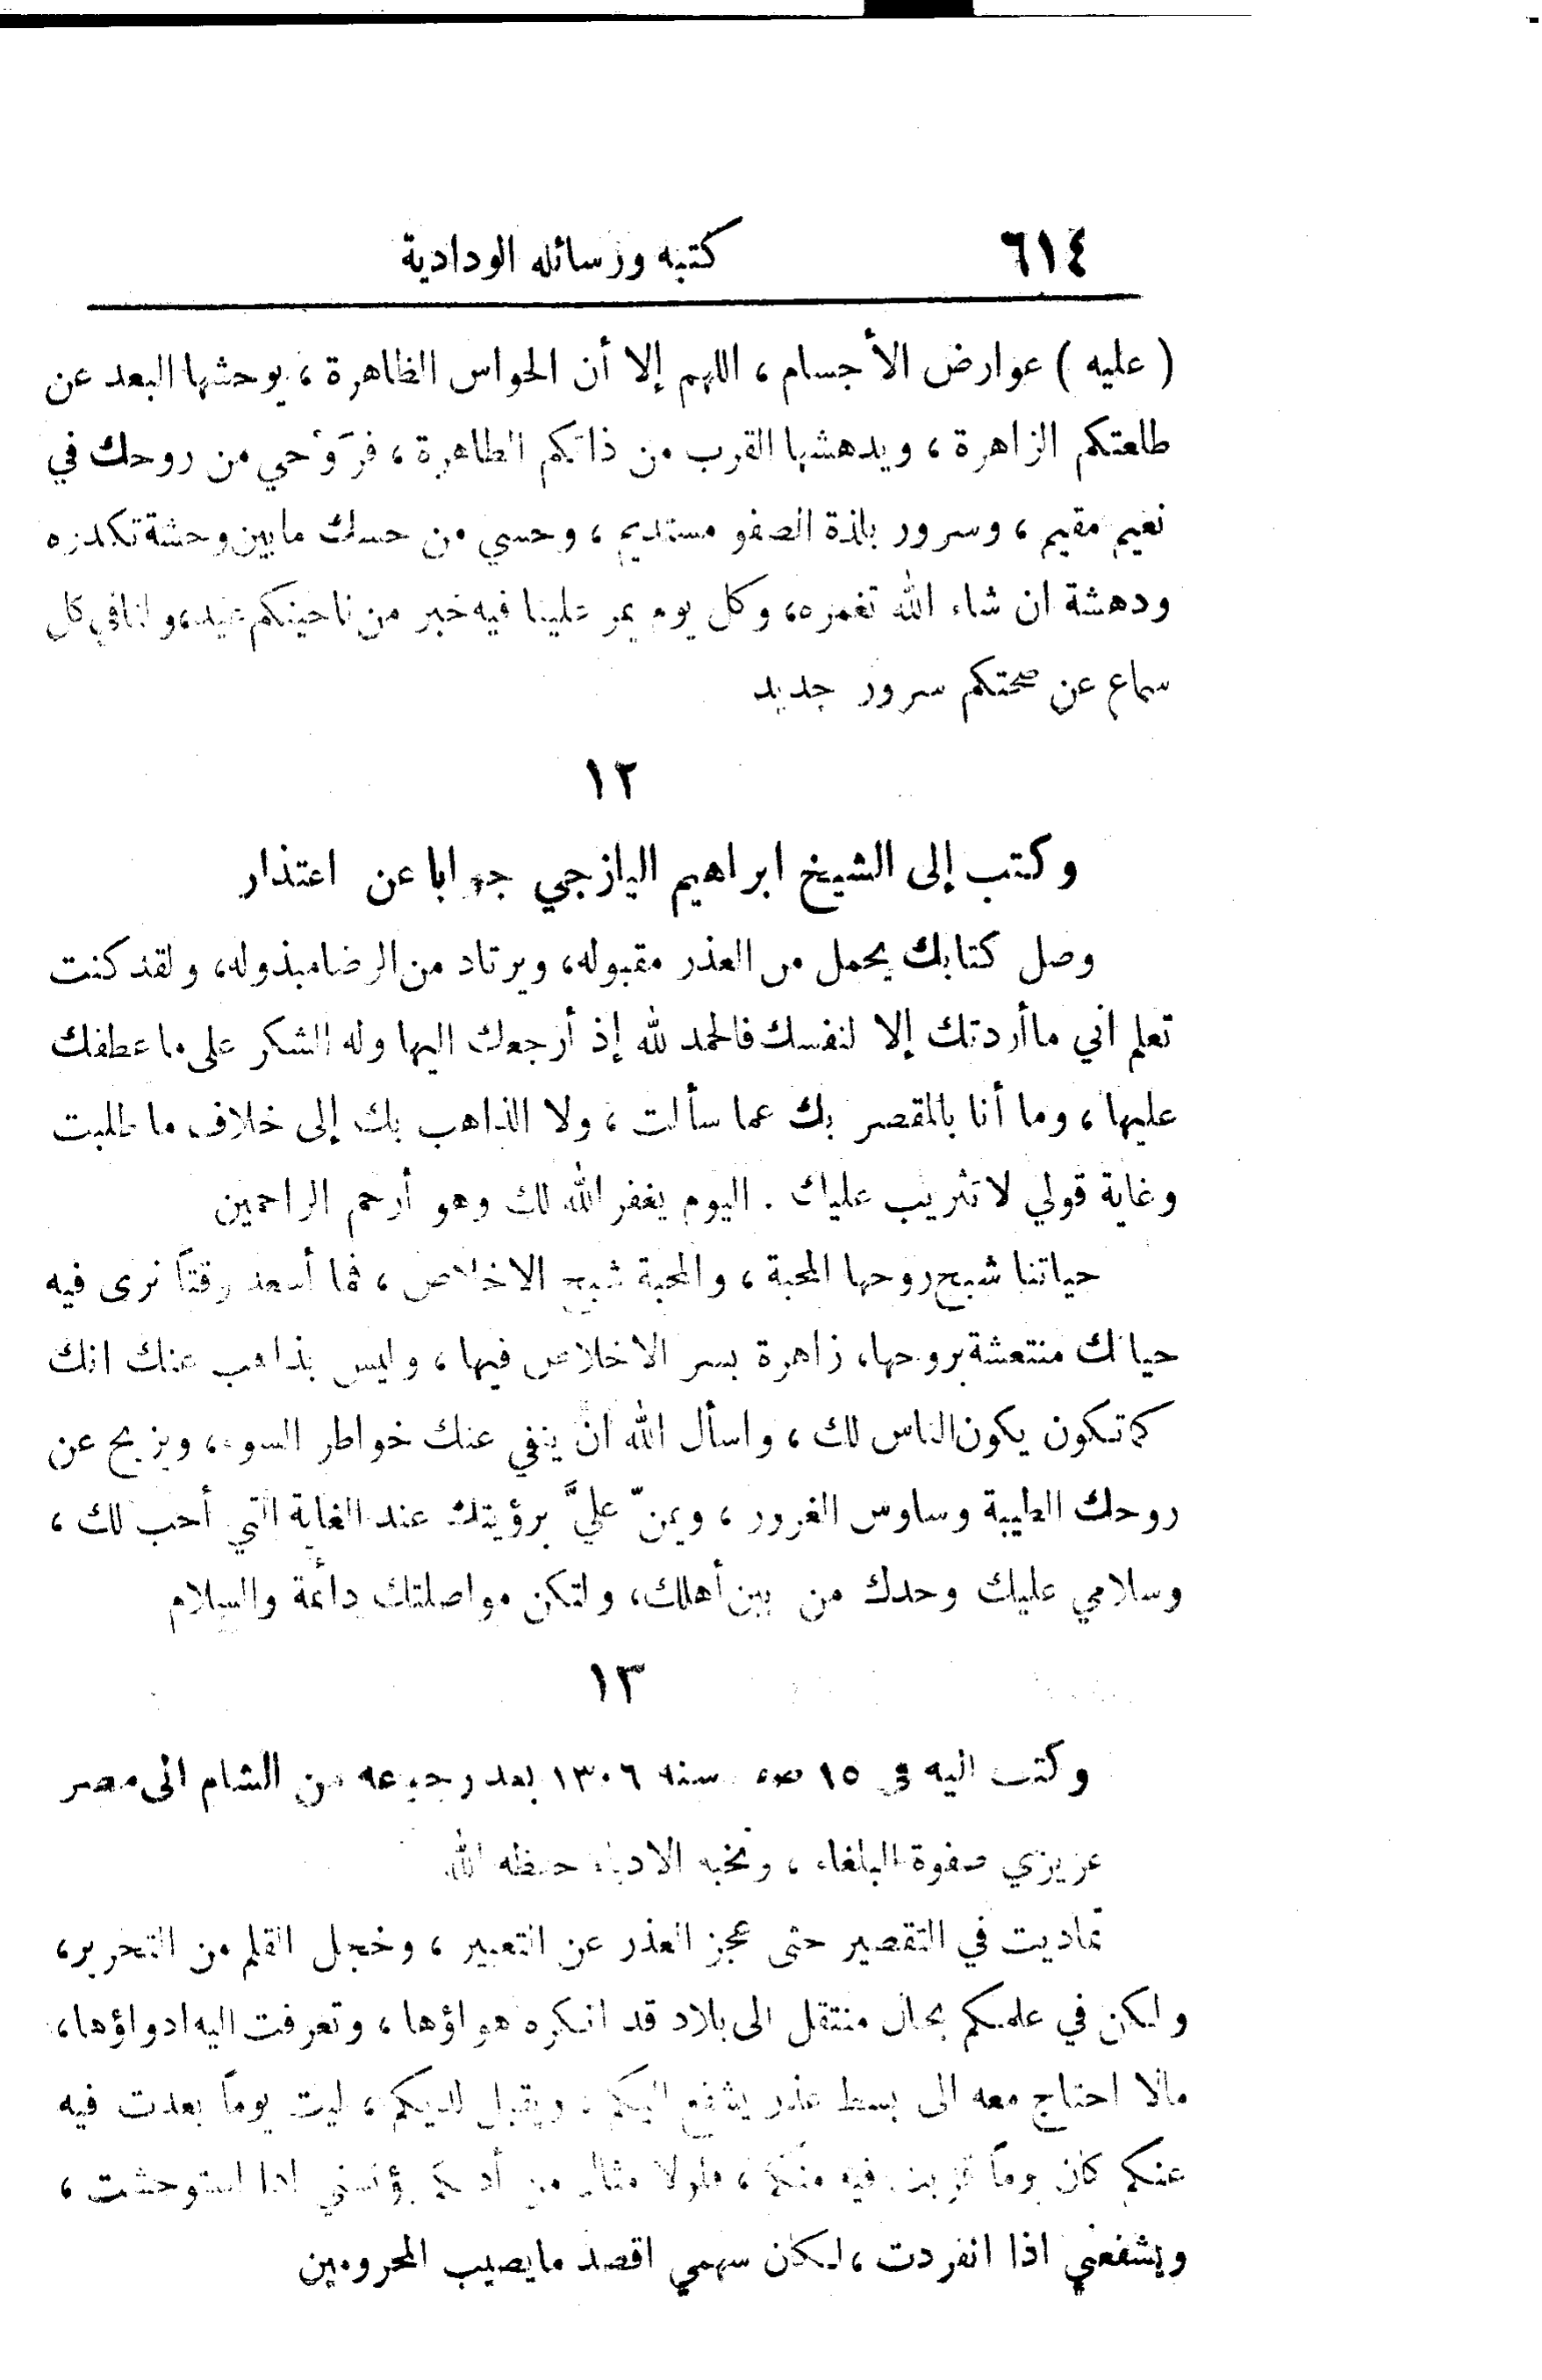 ٦١٤ كتبه ورسائله الودادية
( عليه ) عوارض الأجسام ، اللهم إلا أن الحواس الظاهرة ، يوحشها البعد عن
طلعتكم الزاهرة ، ويدهشها القرب من ذاتكم الطاهرة ، فرَوْحي من روحك في
نعيم مقيم ، وسرور بلذة الصفو مستديم ، وحسي من حسك مابين وحشة تكدره
ودهشة ان شاء الله تغمره، وكل يوم يمر علينا فيه خبر من ناحيتكم عيد، ولنا في كل
سماع عن صحتكم سرور جديد
١٢
وكتب إلى الشيخ ابراهيم اليازجي جوابا عن اعتذار
وصل كتابك يحمل من العذر مقبوله، ويرتاد من الرضا مبذوله، ولقد كنت
تعلم اني ماأردتك إلا لنفسك فالحمد لله إذ أرجعك اليها وله الشكر على ما عطفك
عليها ، وما أنا بالمقصر بك عما سألت ، ولا الذاهب بك إلى خلاف ما طلبت
وغاية قولي لا تثريب عليك . اليوم يغفر الله لك وهو أرحم الراحمين
حياتنا شبح روحها المحبة ، والمحبة شبح الاخلاص ، فما أسعد وقتاً نرى فيه
حياتك منتعشة بروحها، زاهرة بسر الاخلاص فيها ، وليس بذاهب عنك انك
كما تكون يكون الناس لك ، واسأل الله ان ينفي عنك خواطر السوء، ويزيح عن
روحك الطيبة وساوس الغرور ، ويمنّ عليَّ برؤيتك عند الغاية التي أحب لك ،
وسلامي عليك وحدك من بين أهلك، ولتكن مواصلتك دائمة والسلام
١٣
وكتب اليه في ١٥ سنة ١٣٠٦ بعد رجوعه من الشام الى مصر
عزيزي صفوة البلغاء ، ونخبة الادباء حفظه الله
تماديت في التقصير حتى عجز العذر عن التعبير ، وخجل القلم من التحرير،
ولكن في علمكم بحال منتقل الى بلاد قد انكره هواؤها ، وتعرفت اليه ادواؤها،
مالا احتاج معه الى بسط عذر يشفع اليكم ، ويقبل لديكم ، ليت يوماً بعدت فيه
عنكم كان يوماً قربت فيه منكم ، فلولا مثال من أدبكم يؤنسني اذا استوحشت ،
ويشفعني اذا انفردت ، لكان سهمي اقصد مايصيب المحرومين